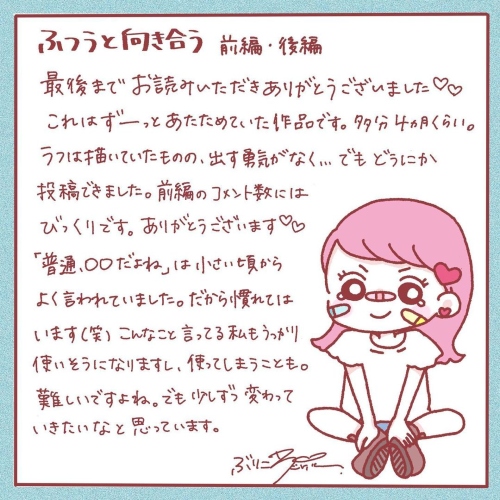 ふつうと向き合う 前編・後編
最後まで お読みいただきありがとうございました♡♡
これはずーっとあたためていた作品です。多分4ヵ月くらい。
ラフは描いていたものの、出す勇気がなく…でもどうにか
投稿できました。前編のコメント数には
びっくりです。ありがとうございます♡♡
「普通、○○だよね」は小さい頃から
よく言われていました。だから慣れては
います(笑) こんなこと言ってる私もうっかり
使いそうになりますし、使ってしまうことも。
難しいですよね。でも少しずつ変わって
いきたいなと思っています。
ぶりこ